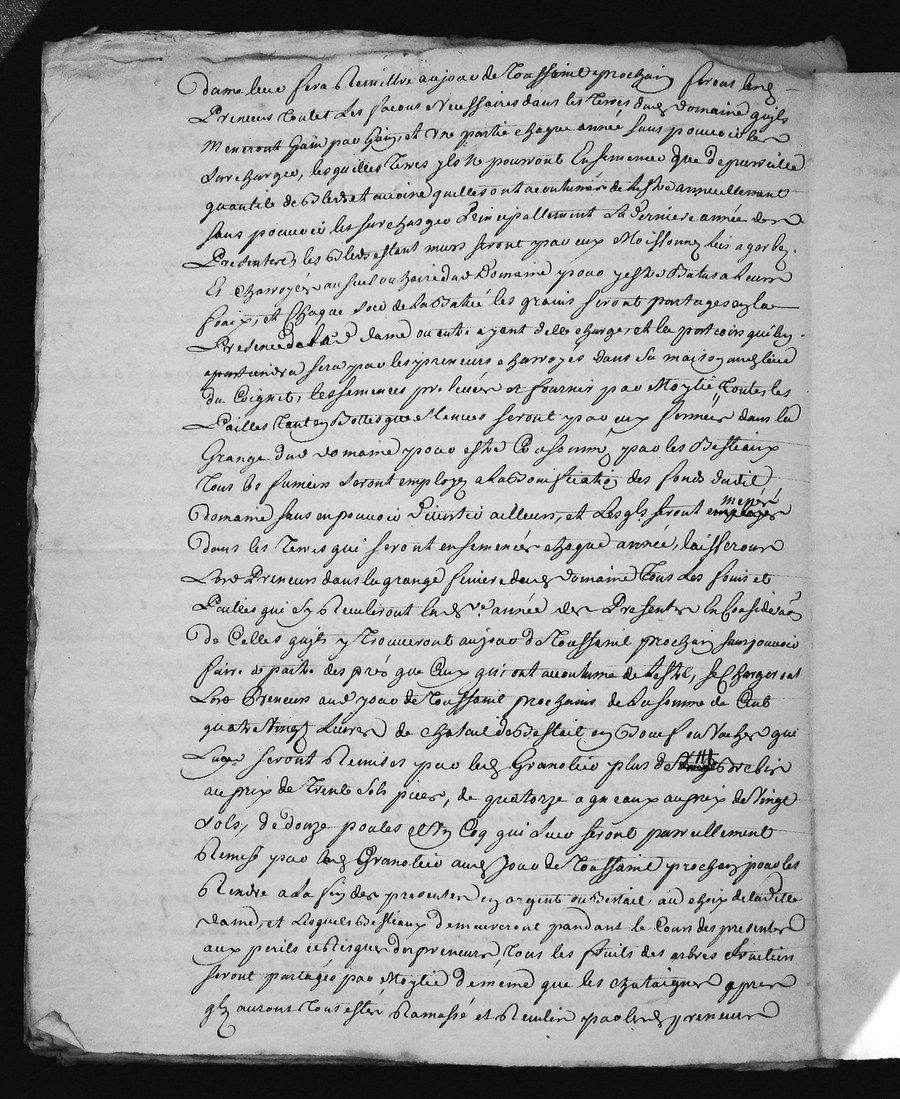 dame leur fera Remettre au jour de Toussaint prochain feront lesd
Preneurs Toutes Les facons Necessaires dans les Terres dud Domaine quils
Meneront Gain par Gain, et une partie chaque année sans pouvoir les
Surcharger, lesquelles Terres yls Ne pourront Ensemencer que de pareille
quantité de Bled et avoine quelles ont acoutumés de Lestre annuellement
sans pouvoir les surcharger Principallement La derniere année des
Presentes les Bleds estant murs seront par eux Moissonnes liés a gerbes
Et Charroyes au suel ou haire dud Domaine pour y estre Batus a Leurs
fraix, et Chaque soir de La Batue les grains seront partages en la
Presence de lad dame ou autre ayant delle charge, et la portion qui luy
apartiendra sera par les preneurs charroyes dans sa maison au lieu
du Poignet, les semences prelevées et fournis par Moytié Toutes les
Pailles Tant en Bottes que Menues seront par eux fermées dans la
Grange dud Domaine pour estre Consonmé par les Bestiaux
Tous les fumiers seront employes a La Bonification des fonds dudit
Domaine sans en pouvoir divertir ailleurs, et Lesquels seront menés
dans les Terres qui seront ensemencés chaque année, laisseront
Lesd Preneurs dans la grange finiere dud Domaine Tous Les foins et
Pailles qui sy Receuilliront lad année des Presentes En Consideraon
de Celles quils y Trouveront au jour de Toussaint prochain sans pouvoir
faire depaitre des prés que Ceux qui ont acoutume de Lestre, se Chargeront
Lesd Preneurs aud jour de Toussaint prochains de La somme de Cent
quatre Vingt Livres de chatail de Bestail en Boeuf ou Vaches qui
Leur seront Remises par led Granolier plus de Brebis
au prix de Trente sols piece, de quatorze agneaux au prix de Vingt
sols, de douze poules et Un Coq qui Leur seront pareillement
Remise par led Granolier aud Jour de Toussaint prochain pour les
Rendre a La fin des presentes en argent ou Bestail au choix de ladite
dame, et Lesquels Bestiaux demeureront pandant le Cours des presentes
aux perils et Risques des preneurs, Tous les fruits des arbres fruitiers
seront partagés par Moytié de meme que les chataignes apres
quils auront Tous estés Ramassé et Reculie par lesd preneurs